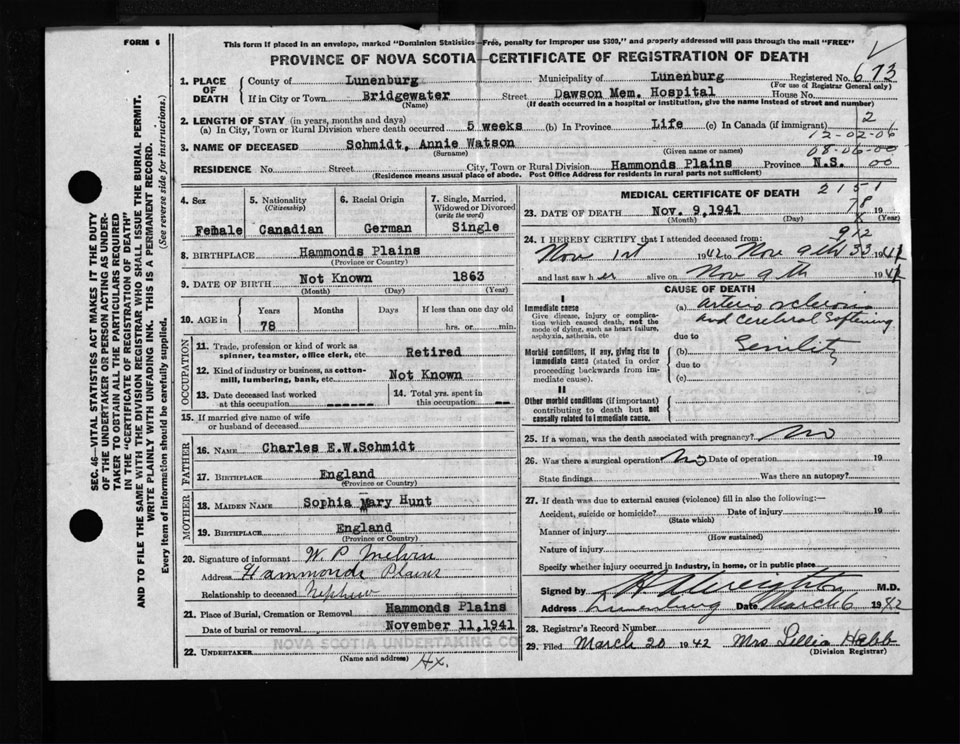 FORM 6
This form if placed in an envelope, marked "Dominion Statistics—Free, penalty for improper use $300," and properly addressed will pass through the mail "FREE"
PROVINCE OF NOVA SCOTIA—CERTIFICATE OF REGISTRATION OF DEATH
673
1. PLACE OF DEATH County of Lunenburg Municipality of Lunenburg Registered No.
(For use of Registrar General only)
If in City or Town Bridgewater Street Dawson Mem. Hospital House No.
(Name) (If death occurred in a hospital or institution, give the name instead of street and number)
2. LENGTH OF STAY (in years, months and days)
(a) In City, Town or Rural Division where death occurred 5 weeks (b) In Province Life (c) In Canada (if immigrant) 2
12-02-06
3. NAME OF DECEASED Schmidt, Annie Watson
(Surname) (Given name or names) 08-06-00
RESIDENCE No. Street City, Town or Rural Division Hammonds Plains Province N.S. 00
(Residence means usual place of abode. Post Office Address for residents in rural parts not sufficient)
4. Sex 5. Nationality (Citizenship) 6. Racial Origin 7. Single, Married, Widowed or Divorced (write the word)
Female Canadian German Single
8. BIRTHPLACE Hammonds Plains
(Province or Country)
9. DATE OF BIRTH Not Known 1863
(Month) (Day) (Year)
10. AGE in Years Months Days If less than one day old
78 hrs. or min.
OCCUPATION
11. Trade, profession or kind of work as spinner, teamster, office clerk, etc. Retired
12. Kind of industry or business, as cotton-mill, lumbering, bank, etc. Not Known
13. Date deceased last worked at this occupation 14. Total yrs. spent in this occupation
15. If married give name of wife or husband of deceased
FATHER
16. NAME Charles E.W.Schmidt
17. BIRTHPLACE England
(Province or Country)
MOTHER
18. MAIDEN NAME Sophia Mary Hunt
19. BIRTHPLACE England
(Province or Country)
20. Signature of informant W. P. Melvin
Address Hammonds Plains
Relationship to deceased Nephew
21. Place of Burial, Cremation or Removal Hammonds Plains
Date of burial or removal November 11,1941
NOVA SCOTIA UNDERTAKING CO
22. UNDERTAKER Hx.
(Name and address)
MEDICAL CERTIFICATE OF DEATH
2151
78
23. DATE OF DEATH Nov. 9,1941 19
(Month) (Day) (Year)
24. I HEREBY CERTIFY that I attended deceased from:
Nov 1st 1942 to Nov 9th 194
and last saw her alive on Nov 9th 194
CAUSE OF DEATH
I
Immediate cause (a) Arterio sclerosis
Give disease, injury or complication which caused death, not the mode of dying, such as heart failure, asphyxia, asthenia, etc.
and Cerebral Softening
due to
Morbid conditions, if any, giving rise to immediate cause (stated in order proceeding backwards from immediate cause).
(b) Senility
due to
(c)
II
Other morbid conditions (if important) contributing to death but not causally related to immediate cause.
25. If a woman, was the death associated with pregnancy? No
26. Was there a surgical operation? No Date of operation 19
State findings Was there an autopsy?
27. If death was due to external causes (violence) fill in also the following:—
Accident, suicide or homicide? Date of injury 19
(State which)
Manner of injury
(How sustained)
Nature of injury
Specify whether injury occurred in industry, in home, or in public place
Signed by M.D.
Address Lunenburg Date March 6 1942
28. Registrar's Record Number
29. Filed March 20 1942 Mrs Lillia Hebb
(Division Registrar)
SEC. 46—VITAL STATISTICS ACT MAKES IT THE DUTY
OF THE UNDERTAKER OR PERSON ACTING AS UNDER-
TAKER TO OBTAIN ALL THE PARTICULARS REQUIRED
IN THE "CERTIFICATE OF REGISTRATION OF DEATH"
AND TO FILE THE SAME WITH THE DIVISION REGISTRAR WHO SHALL ISSUE THE BURIAL PERMIT.
WRITE PLAINLY WITH UNFADING INK. THIS IS A PERMANENT RECORD.
Every item of information should be carefully supplied. (See reverse side for instructions.)